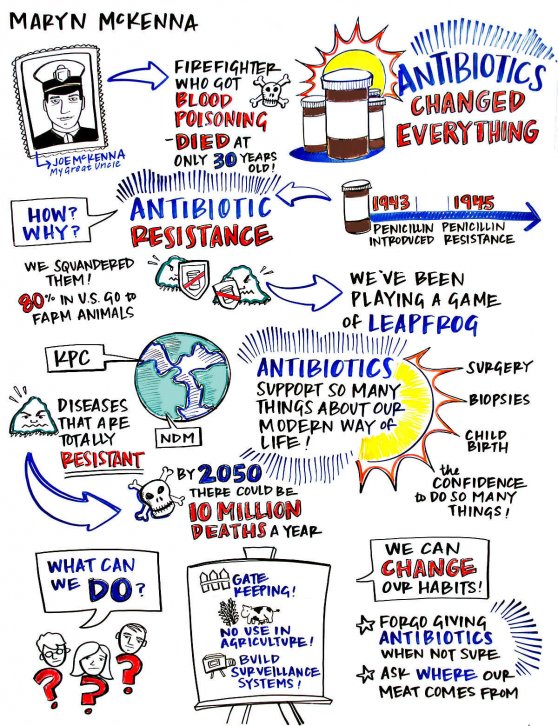 MARYN McKENNA
JOE McKENNA
My Great Uncle
FIREFIGHTER
WHO GOT
BLOOD
POISONING
- DIED AT
ONLY 30 YEARS
OLD!
ANTIBIOTICS
CHANGED
EVERYTHING
HOW?
WHY?
ANTIBIOTIC
RESISTANCE
1943 1945
PENICILLIN PENICILLIN
INTRODUCED RESISTANCE
WE SQUANDERED
THEM!
80% IN U.S. GO to
FARM ANIMALS
WE'VE BEEN
PLAYING A GAME
of LEAPFROG
KPC
NDM
DISEASES
THAT ARE
TOTALLY
RESISTANT
ANTIBIOTICS
SUPPORT SO MANY
THINGS ABOUT OUR
MODERN WAY of
LIFE!
SURGERY
BIOPSIES
CHILD
BIRTH
the
CONFIDENCE
to DO SO MANY
THINGS!
BY 2050
THERE COULD BE
10 MILLION
DEATHS A YEAR
WHAT CAN
WE DO?
? ? ?
GATE
KEEPING!
NO USE IN
AGRICULTURE!
BUILD
SURVEILLANCE
SYSTEMS!
WE CAN
CHANGE
OUR HABITS!
FORGO GIVING
ANTIBIOTICS
WHEN NOT SURE
ASK WHERE OUR
MEAT COMES FROM